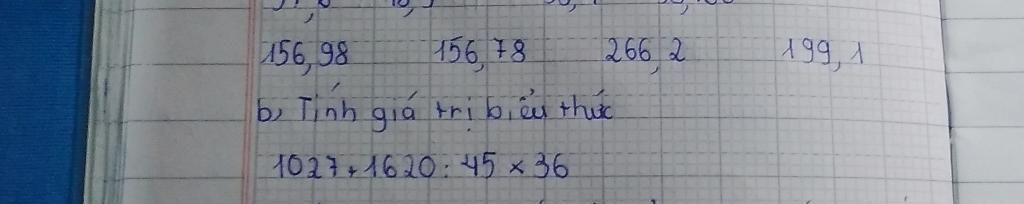 156,98 156,78 266,2 199,1
b, Tính giá trị biểu thức
1027 + 1620 : 45 × 36